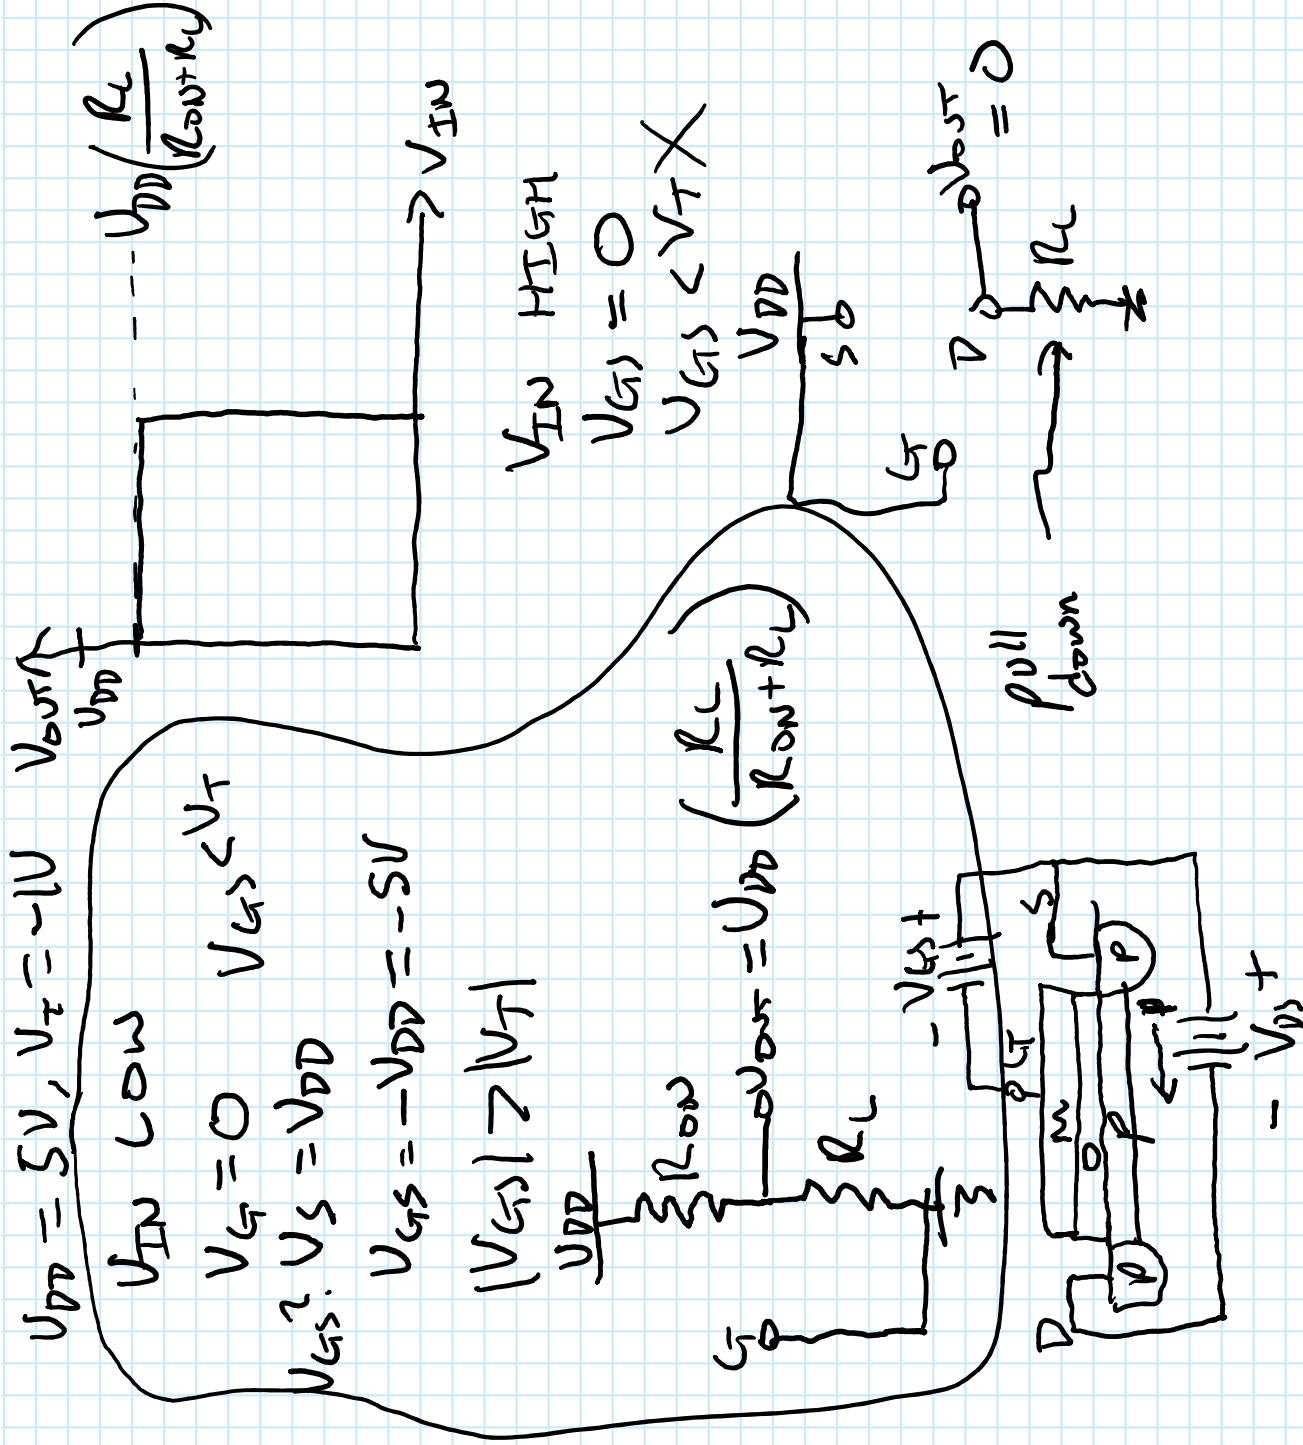 V_DD = 5V, V_T = -1V
V_IN LOW
V_G = 0
V_GS < V_T
V_GS? V_S = V_DD
V_GS = -V_DD = -5V
|V_GS| > |V_T|
V_DD
R_ON
V_OUT = V_DD (R_L / (R_ON + R_L))
R_L
G
- V_GS +
S
G
M
O
P
P
P
D
- V_DS +
V_OUT
V_DD
V_DD (R_L / (R_ON + R_L))
V_IN
V_IN HIGH
V_GS = 0
V_GS < V_T X
V_DD
S
G
D
V_OUT = 0
R_L
Pull
down